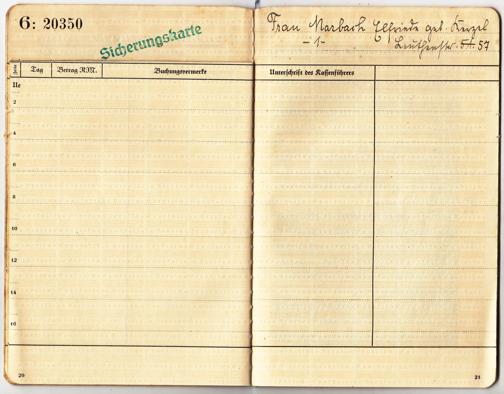 6: 20350
Sicherungskarte
Frau Marbach Elfriede geb.
- 1 -
57
Tag Betrag RM. Buchungsvermerke Unterschrift des Kassenführers
2
4
6
8
10
12
14
16
20 21